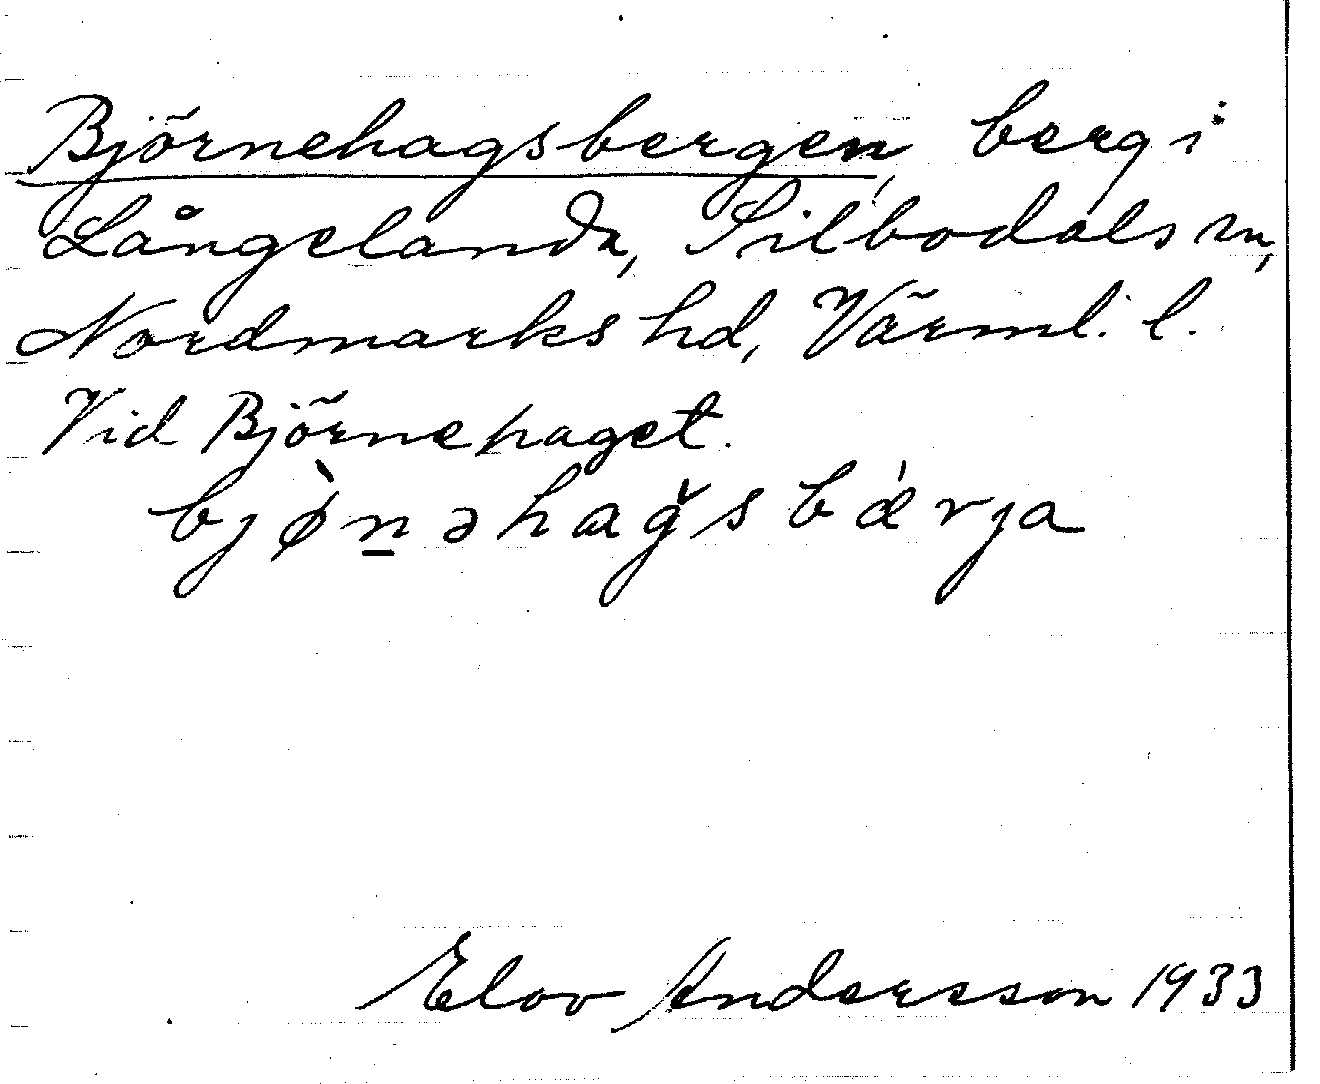 Björnehagsbergen, berg i
Långelanda, Silbodals sn,
Nordmarks hd, Värml. l.
Vid Björnehaget.
bjø̀n̲əhağsbǽrja
Elov Andersson 1933